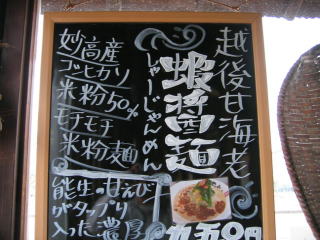 越後甘海老
蝦醤麺
しゃーじゃんめん
九五〇円
妙高産
コシヒカリ
米粉50%
モチモチ
米粉麺
能生の甘えび
がタップリ
入った濃厚